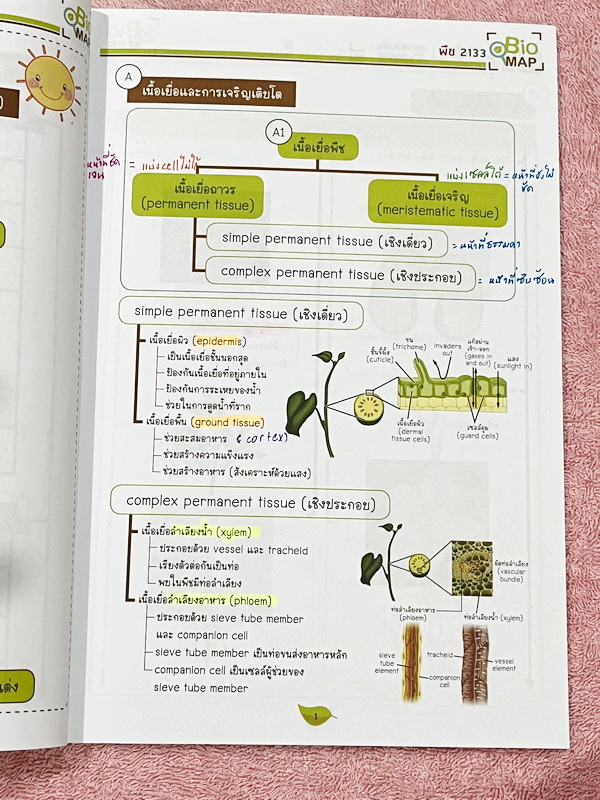 พืช 2133
Bio
MAP
A
เนื้อเยื่อและการเจริญเติบโต
A1
เนื้อเยื่อพืช
หน้าที่ชัดเจน = แบ่ง cell ไม่ได้
แบ่งเซลล์ได้ = หน้าที่ยังไม่ชัด
เนื้อเยื่อถาวร
(permanent tissue)
เนื้อเยื่อเจริญ
(meristematic tissue)
simple permanent tissue (เชิงเดี่ยว) = หน้าที่ธรรมดา
complex permanent tissue (เชิงประกอบ) = หน้าที่ซับซ้อน
simple permanent tissue (เชิงเดี่ยว)
เนื้อเยื่อผิว (epidermis)
เป็นเนื้อเยื่อชั้นนอกสุด
ป้องกันเนื้อเยื่อที่อยู่ภายใน
ป้องกันการระเหยของน้ำ
ช่วยในการดูดน้ำที่ราก
เนื้อเยื่อพื้น (ground tissue)
ช่วยสะสมอาหาร & cortex)
ช่วยสร้างความแข็งแรง
ช่วยสร้างอาหาร (สังเคราะห์ด้วยแสง)
ชั้นขี้ผึ้ง
(cuticle)
ขน
(trichome)
invaders
out
แก๊สผ่าน
เข้า-ออก
(gases in
and out)
แสง
(sunlight in)
เนื้อเยื่อผิว
(dermal
tissue cells)
เซลล์คุม
(guard cells)
complex permanent tissue (เชิงประกอบ)
เนื้อเยื่อลำเลียงน้ำ (xylem)
ประกอบด้วย vessel และ tracheid
เรียงตัวต่อกันเป็นท่อ
พบในพืชมีท่อลำเลียง
เนื้อเยื่อลำเลียงอาหาร (phloem)
ประกอบด้วย sieve tube member
และ companion cell
sieve tube member เป็นท่อขนส่งอาหารหลัก
companion cell เป็นเซลล์ผู้ช่วยของ
sieve tube member
มัดท่อลำเลียง
(vascular
bundle)
ท่อลำเลียงอาหาร
(phloem)
ท่อลำเลียงน้ำ (xylem)
sieve
tube
element
companion
cell
tracheid
vessel
element
1